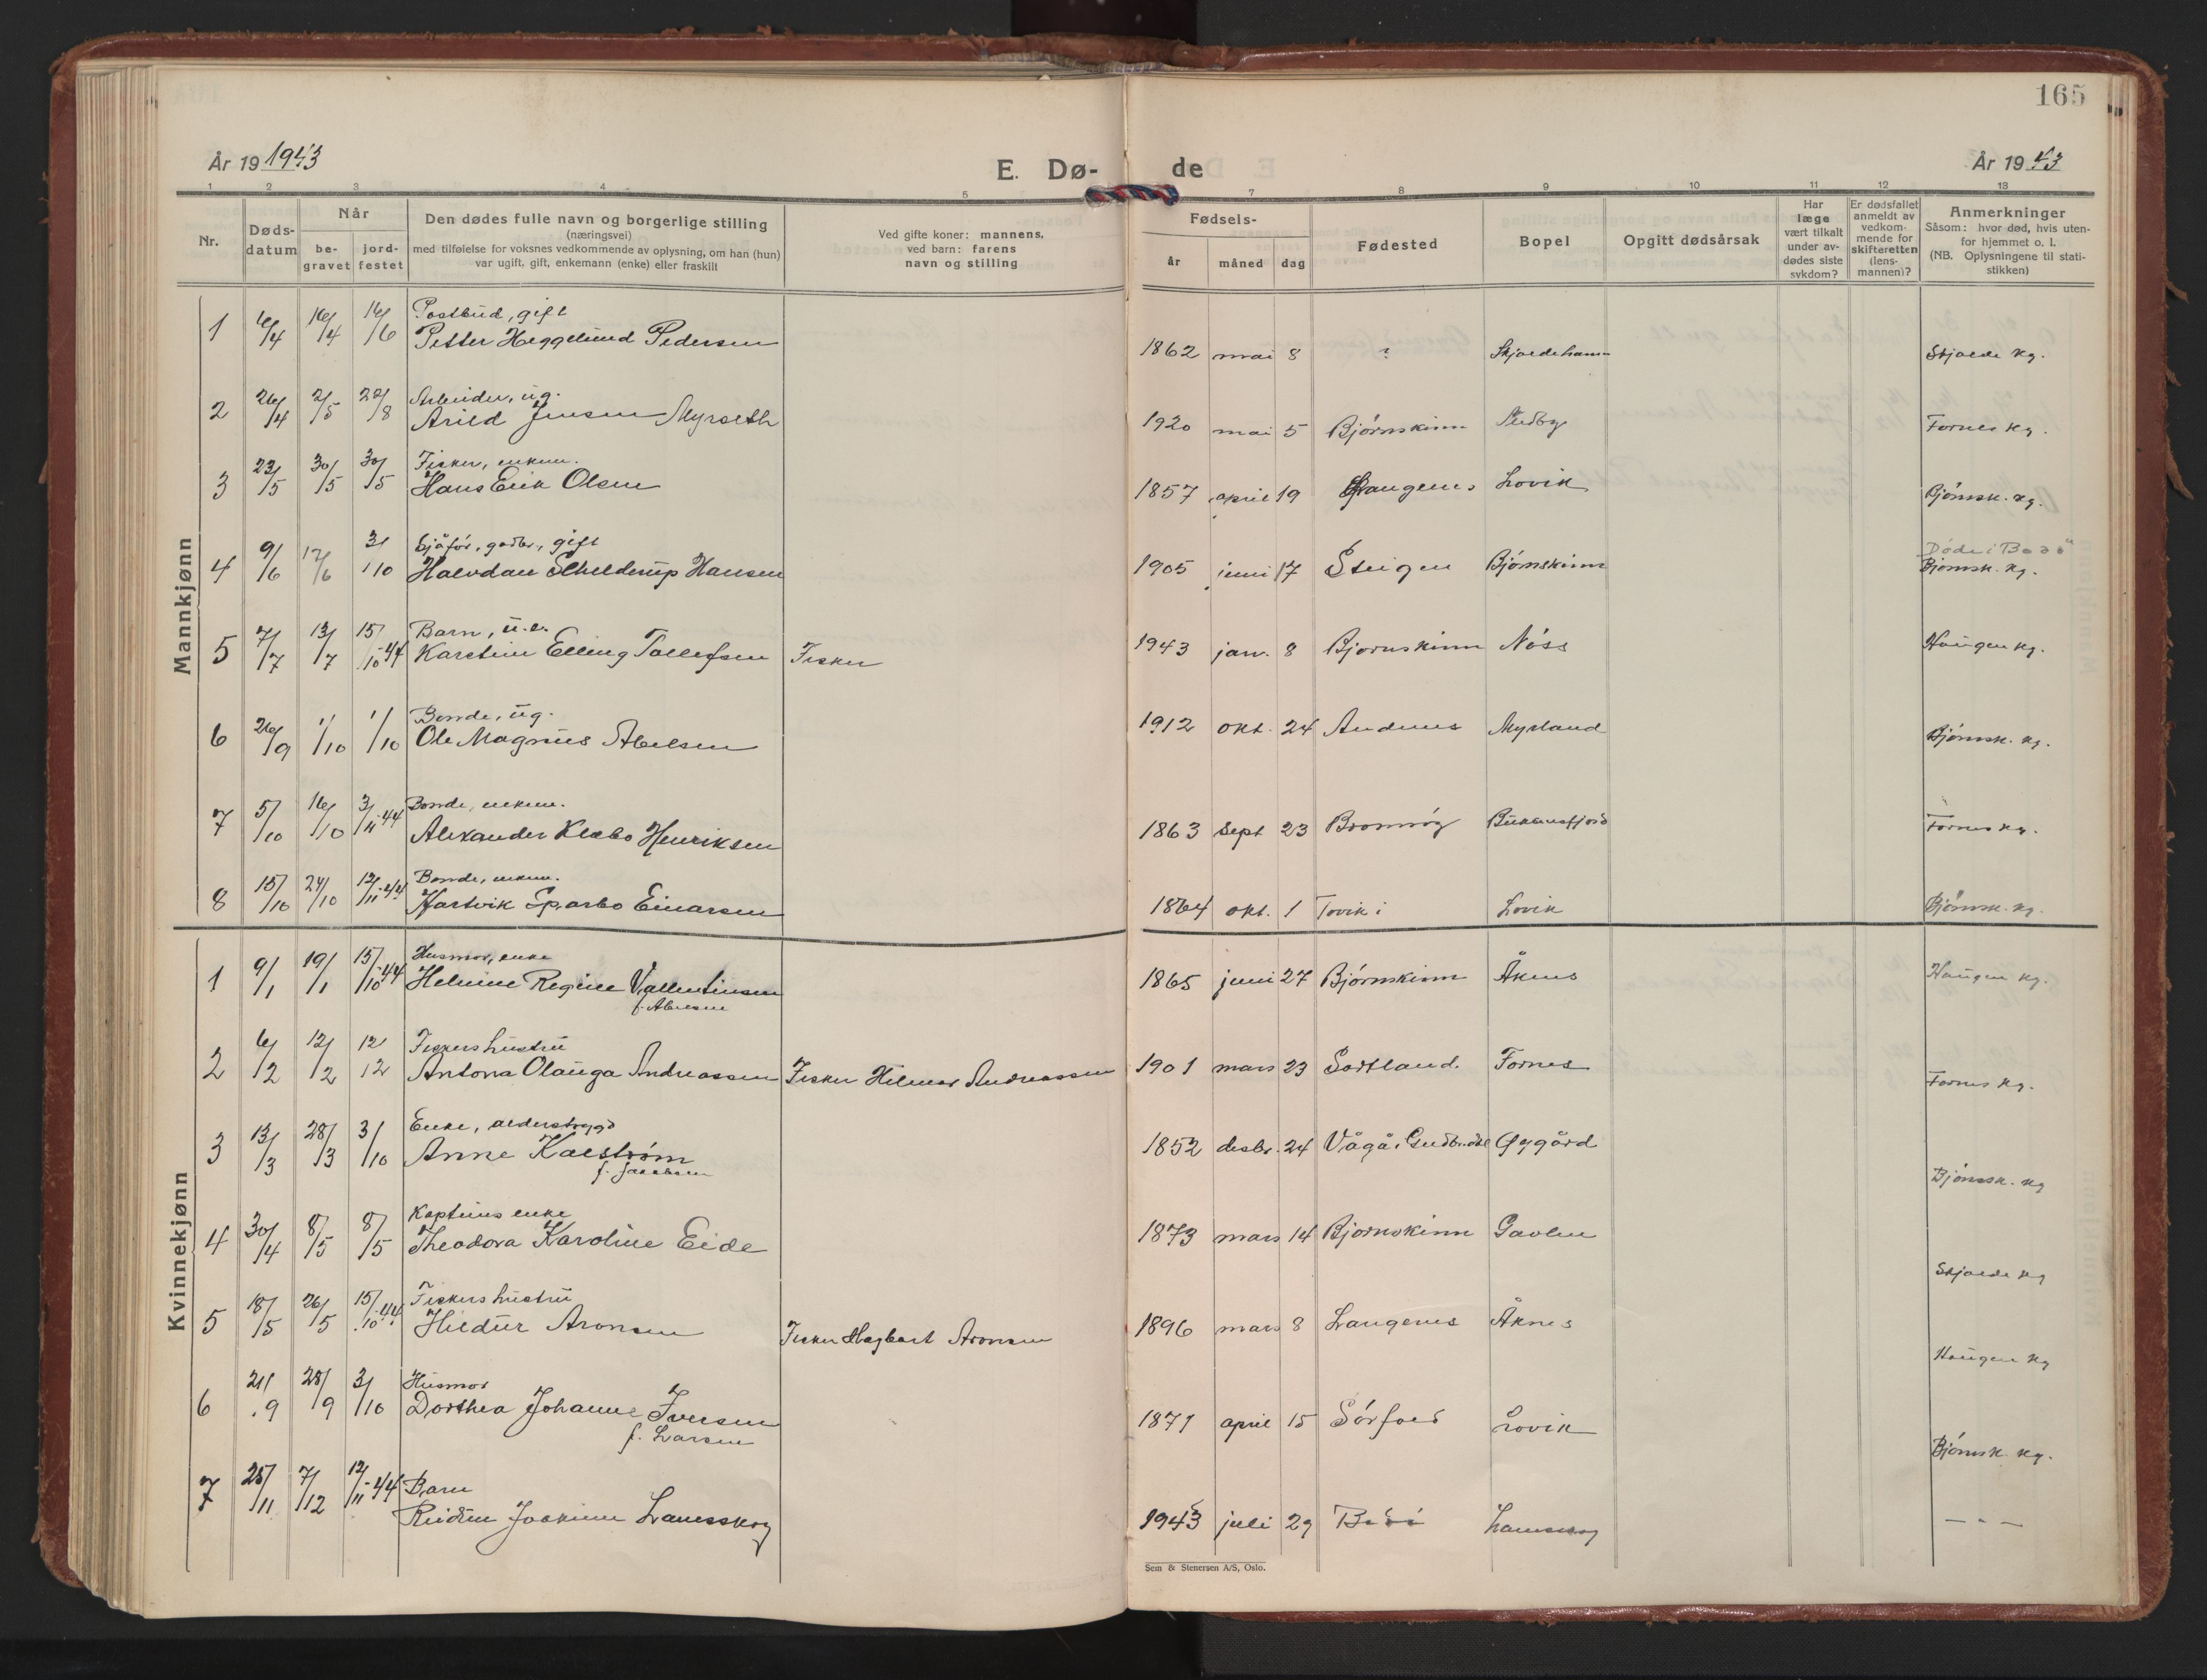 165
År 19 1943
E. Dø-
de
År 19 43
1 2 3 4 5 7 8 9 10 11 12 13
Nr.
Døds-
datum
Når
be-
gravet
jord-
festet
Den dødes fulle navn og borgerlige stilling
(næringsvei)
med tilføielse for voksnes vedkommende av oplysning, om han (hun)
var ugift, gift, enkemann (enke) eller fraskilt
Ved gifte koner: mannens,
ved barn: farens
navn og stilling
Fødsels-
år måned dag
Fødested
Bopel
Opgitt dødsårsak
Har
læge
vært tilkalt
under av-
dødes siste
sykdom?
Er dødsfallet
anmeldt av
vedkom-
mende for
skifteretten
(lens-
mannen)?
Anmerkninger
Såsom: hvor død, hvis uten-
for hjemmet o. l.
(NB. Oplysningene til stati-
stikken)
Mannkjønn
Postbud, gift
1 6/4 16/4 16/6 Petter Heggelund Pedersen 1862 mai 8 ? Skjoldehamn Skjolde kg.
Arbeider, ug.
2 26/4 2/5 22/8 Arild Jensen Myrseth 1920 mai 5 Bjørnskinn Nedby Fornes kg.
Fisker, enkem.
3 23/5 30/5 30/5 Hans Erik Olsen 1857 april 19 Langenes Lovik Bjørnsk. kg.
Sjåfør, gårdbr., gift
Døde i Bodø
4 9/6 17/6 3/10 Halvdan Schelderup Hansen 1905 juni 17 Steigen Bjørnskinn Bjørnsk. kg.
Barn, u.e.
5 7/7 13/7 15/10-44 Karstein Elling Tollefsen Fisker 1943 jan. 8 Bjørnskinn Nøss Haugen kg.
Bonde, ug.
6 26/9 1/10 1/10 Ole Magnus Abelsen 1912 okt. 24 Andenes Myrland Bjørnsk. kg.
Bonde, enkem.
7 5/10 16/10 3/11-44 Alexander Klæbo Henriksen 1863 sept 23 Bromnøy Bukkensfjord Fornes kg.
Bonde, enkem.
8 15/10 24/10 12/11-44 Hartvik Sparbo Einarsen 1864 okt. 1 Lovik Bjørnsk. kg.
Kvinnekjønn
Husmor, enke
1 9/1 19/1 15/10-44 Helmine Regine Vallentinsen 1865 juni 27 Bjørnskinn Åknes Haugen kg.
f. Abelsen
Fiskers hustru
2 6/2 12/2 12/12 Antona Olauga Andreassen Fisker Hilmar Andreassen 1901 mars 23 Sortland. Fornes Fornes kg.
Enke, alderstrygd
3 13/3 28/3 3/10 Anne Kaelstrøm 1852 desbr. 24 Vågå i Gudbr.dal Øygård Bjørnsk. kg
f. Jacobsen
Kapteins enke
4 30/4 8/5 8/5 Theodora Karoline Eide 1873 mars 14 Bjørnskinn Gavlen Skjolde kg
Fiskers hustru
5 18/5 26/5 15/10-44 Hildur Aronsen Fisker Hagbart Aronsen 1896 mars 8 Langenes Åknes Haugen kg
Husmor
6 21/9 28/9 3/10 Dorthea Johanne Iversen 1871 april 15 Sørfold Lovik Bjørnsk. kg.
f. Larsen
Barn
7 25/11 7/12 12/11-44 Reidun Joakime Lanesskog 1943 juli 29 Bodø Lanesskog — " —
Sem & Stenersen A/S, Oslo.